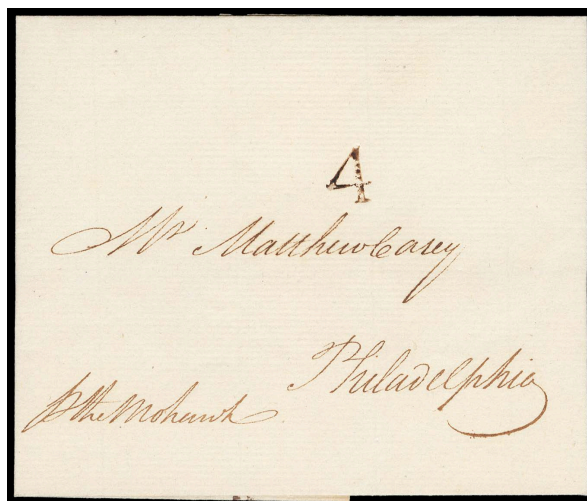 4
Mr Matthew Carey
Philadelphia
p the Mohawk